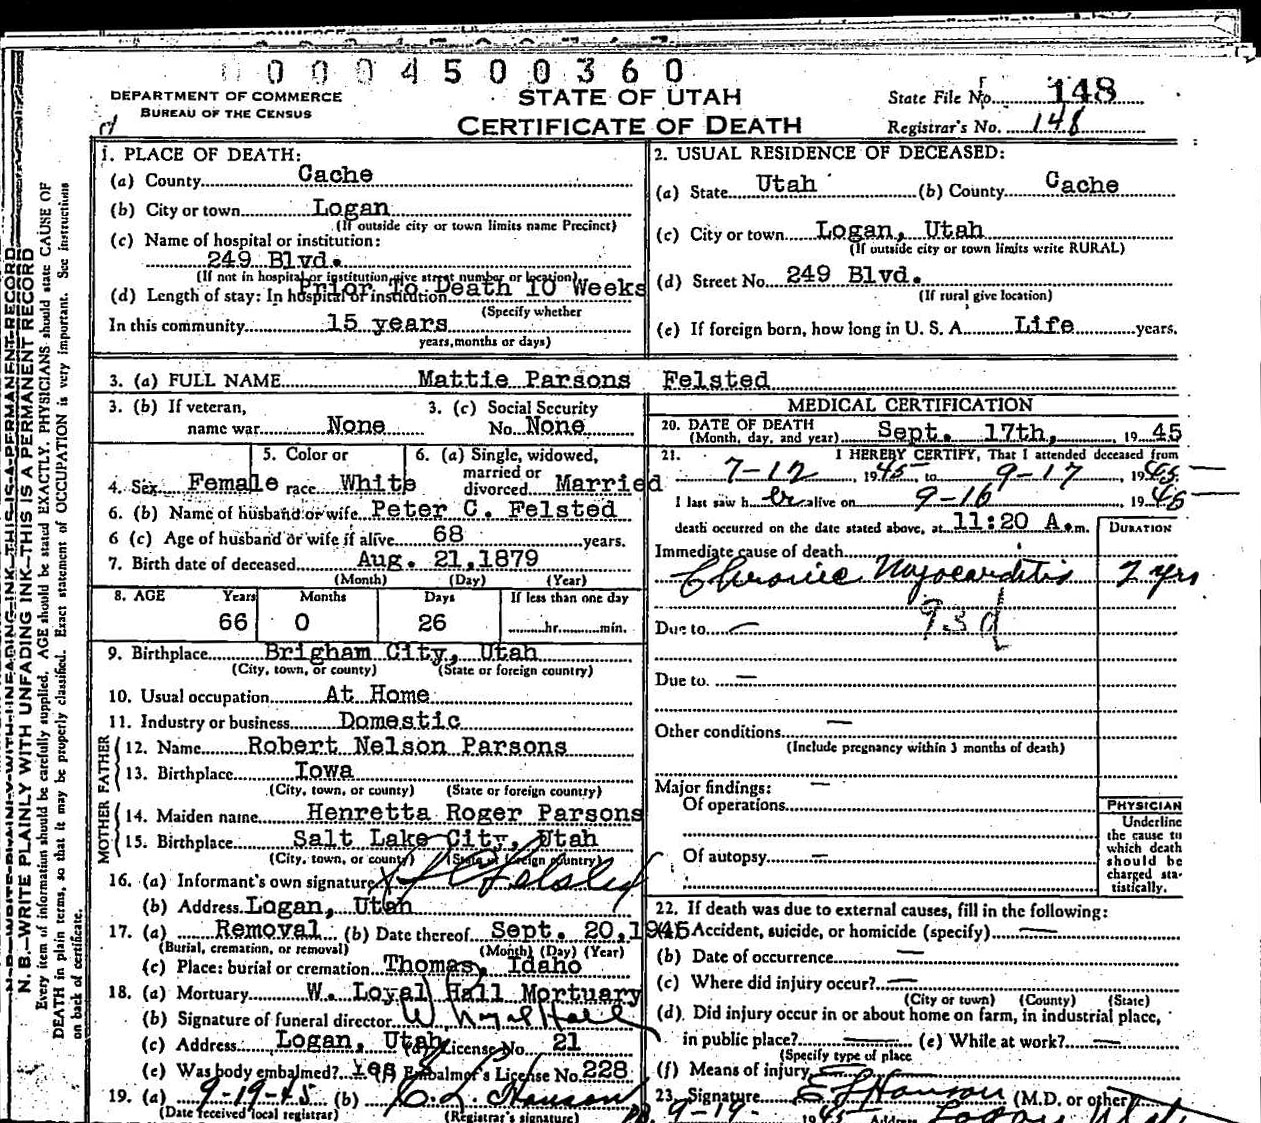 0 0 0 0 4 5 0 0 3 6 0
DEPARTMENT OF COMMERCE
BUREAU OF THE CENSUS
STATE OF UTAH
CERTIFICATE OF DEATH
State File No. 148
Registrar's No. 148
1. PLACE OF DEATH:
(a) County Cache
(b) City or town Logan
(If outside city or town limits name Precinct)
(c) Name of hospital or institution:
249 Blvd.
(If not in hospital or institution give street number or location)
(d) Length of stay: In hospital or institution Prior To Death 10 Weeks
(Specify whether
In this community 15 years
years, months or days)
2. USUAL RESIDENCE OF DECEASED:
(a) State Utah (b) County Cache
(c) City or town Logan, Utah
(If outside city or town limits write RURAL)
(d) Street No. 249 Blvd.
(If rural give location)
(e) If foreign born, how long in U. S. A. Life years.
3. (a) FULL NAME Mattie Parsons Felsted
3. (b) If veteran, name war None
3. (c) Social Security No. None
4. Sex Female
5. Color or race White
6. (a) Single, widowed, married or divorced Married
6. (b) Name of husband or wife Peter C. Felsted
6 (c) Age of husband or wife if alive 68 years.
7. Birth date of deceased Aug. 21, 1879
(Month) (Day) (Year)
8. AGE Years Months Days If less than one day
66 0 26 hr. min.
9. Birthplace Brigham City, Utah
(City, town, or county) (State or foreign country)
10. Usual occupation At Home
11. Industry or business Domestic
FATHER
12. Name Robert Nelson Parsons
13. Birthplace Iowa
(City, town, or county) (State or foreign country)
MOTHER
14. Maiden name Henretta Roger Parsons
15. Birthplace Salt Lake City, Utah
(City, town, or county) (State or foreign country)
16. (a) Informant's own signature Felsted
(b) Address Logan, Utah
17. (a) Removal (b) Date thereof Sept. 20, 1945
(Burial, cremation, or removal) (Month) (Day) (Year)
(c) Place: burial or cremation Thomas, Idaho
18. (a) Mortuary W. Loyal Hall Mortuary
(b) Signature of funeral director W Loyal Hall
(c) Address Logan, Utah (d) License No. 21
(e) Was body embalmed? Yes (f) Embalmer's License No. 228
19. (a) 9-19-45 (b)
(Date received local registrar) (Registrar's signature)
MEDICAL CERTIFICATION
20. DATE OF DEATH
(Month, day, and year) Sept. 17th, 1945
21. I HEREBY CERTIFY, That I attended deceased from
7-12, 1945, to 9-17, 1945
I last saw her alive on 9-16 1945
death occurred on the date stated above, at 11:20 A. m.
DURATION
Immediate cause of death
Chronic Myocarditis 2 yrs
93d
Due to —
Due to. —
Other conditions —
(Include pregnancy within 3 months of death)
Major findings: —
Of operations
Of autopsy —
PHYSICIAN
Underline
the cause to
which death
should be
charged sta-
tistically.
22. If death was due to external causes, fill in the following:
(a) Accident, suicide, or homicide (specify) —
(b) Date of occurrence —
(c) Where did injury occur? —
(City or town) (County) (State)
(d) Did injury occur in or about home on farm, in industrial place,
in public place? — (e) While at work? —
(Specify type of place
(f) Means of injury
23. Signature (M.D. or other)
9-19- 1945 Address Logan Utah
N. B.—WRITE PLAINLY WITH UNFADING INK—THIS IS A PERMANENT RECORD
Every item of information should be carefully supplied. AGE should be stated EXACTLY. PHYSICIANS should state CAUSE OF
DEATH in plain terms, so that it may be properly classified. Exact statement of OCCUPATION is very important. See instructions
on back of certificate.